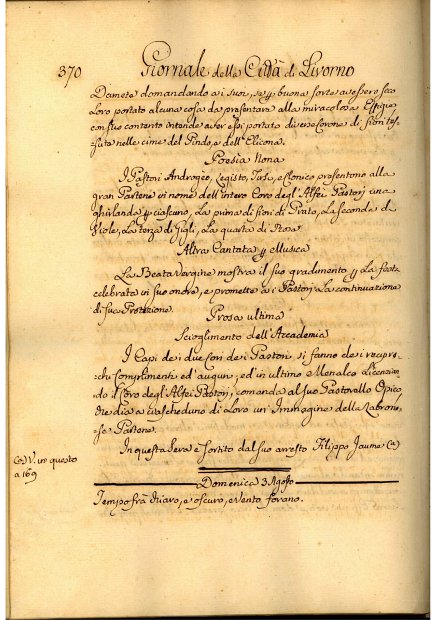 370 Giornale della Città di Livorno
Dameta domandando ai suoi, se p buona sorte avessero seco
Loro portato alcuna cosa da presentare alla miracolosa Effigie
con suo contento intende aver essi portato diverse Corone di fiori tes-
sute nelle cime del Pindo, e dell' Elicona.
Poesia Nona
I Pastori Androgeo, Tirsi, e Clonico presentono alla
gran Pastora in nome dell' intero Coro degl' Alfei Pastori una
ghirlanda p ciascuno, La prima di fiori di Prato, La seconda di
Viole, La terza di Gigli, La quarta di Rose
Altra Cantata p Musica
La Beata Vergine mostra il suo gradimento p La festa
celebrata in suo onore, e promette a i Pastori La continuazione
di sua Protezione.
Prosa ultima
Scioglimento dell' Accademia
I Capi de i due Cori de i Pastori, si fanno de i recipro-
chi Complimenti ed auguri, ed in ultimo Menalca Licenzian-
do il Coro degl' Alfei Pastori, comanda al suo Pastorello Opico,
che dia a ciascheduno di Loro un' Immagine della Labroni-
se Pastora.
In questa sera è sortito dal suo arresto Filippo Jaume (a)
(a) V. in questo
a 169
Domenica 3 Agosto
Tempo frà chiaro, e oscuro, e vento forano.